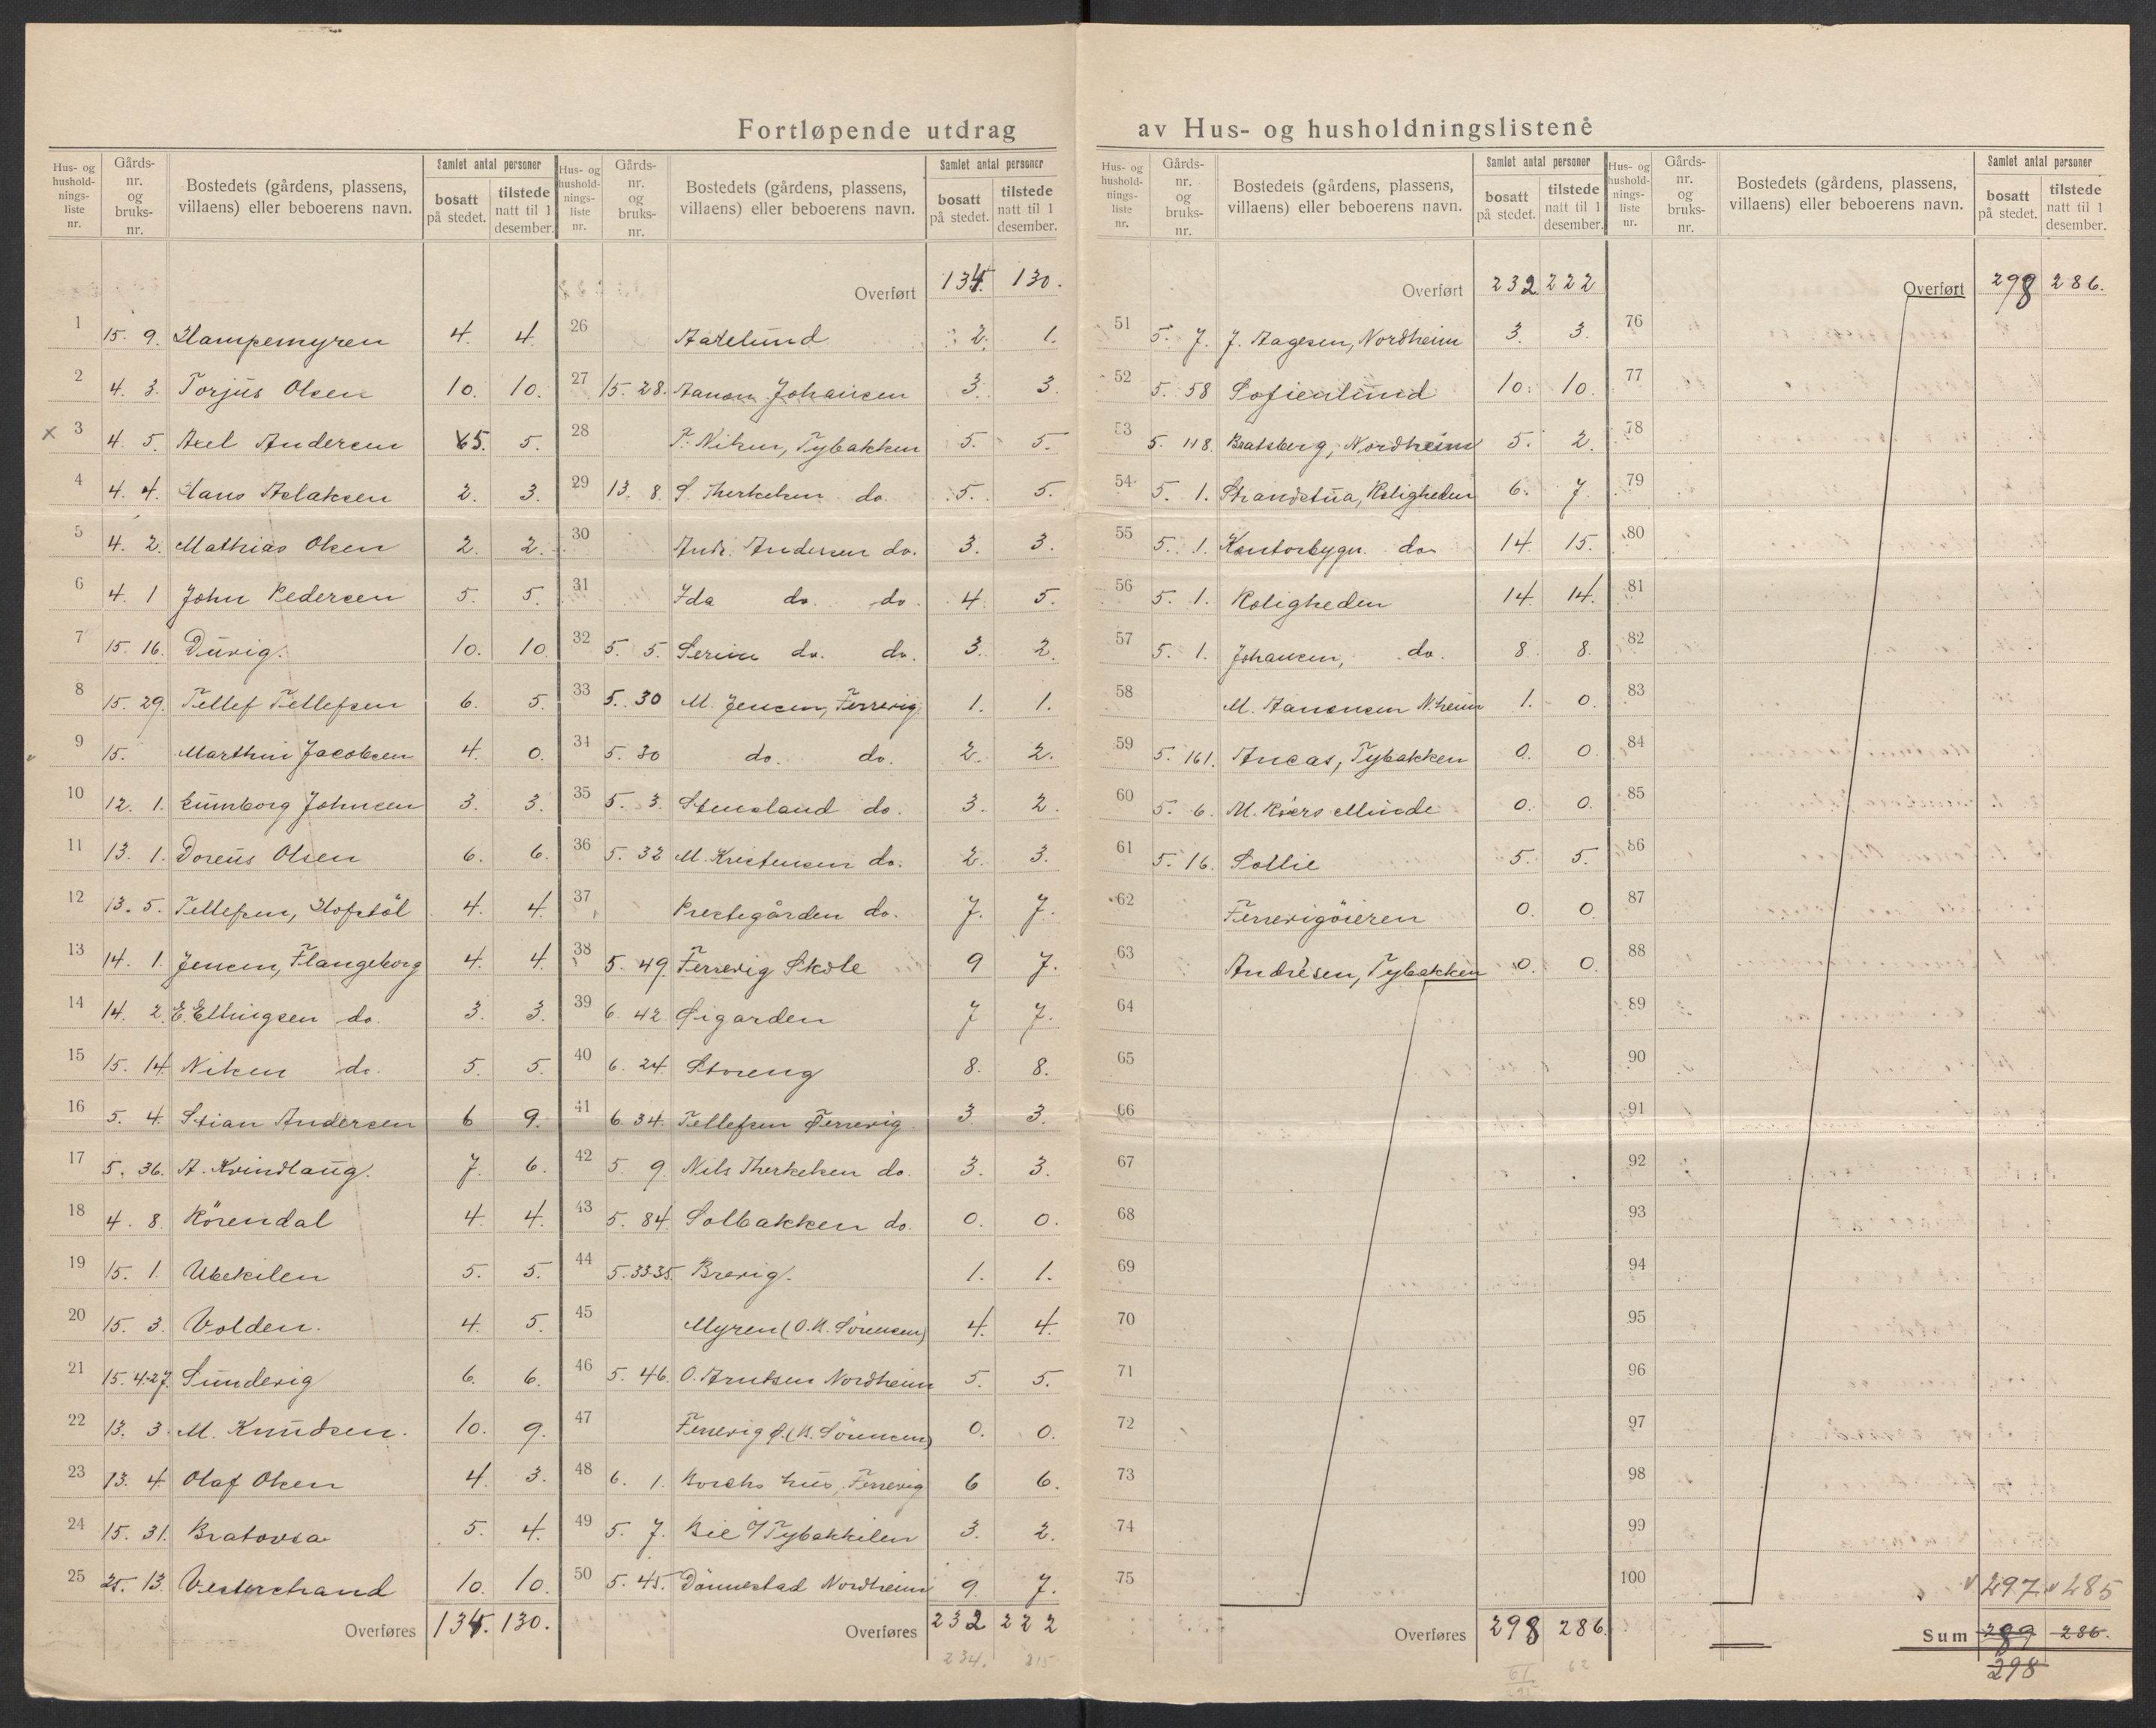 Fortløpende utdrag av Hus- og husholdningslistene
Hus- og husholdningsliste nr. Gårds- nr. og bruks- nr. Bostedets (gårdens, plassens, villaens) eller beboerens navn. Samlet antal personer bosatt på stedet. tilstede natt til 1 desember.
1 15. 9. Hampemyren 4. 4.
2 4. 3. Torjus Olsen 10. 10.
x 3 4. 5. Axel Andersen 5. 5.
4 4. 4. Hans Aslaksen 2. 3.
5 4. 2. Mathias Olsen 2. 2.
6 4. 1 John Pedersen 5. 5.
7 15. 16. Duvig. 10. 10
8 15. 29. Tellef Tellefsen 6. 5.
9 15. Marthin Jacobsen 4. 0.
10 12. 1. Gunborg Johnsen 3. 3.
11 13. 1. Doreus Olsen 6. 6.
12 13. 5. Tellefsen, Hofstøl 4. 4.
13 14. 1. Jensen, Flangeborg 4. 4.
14 14. 2. E. Ellingsen do. 3. 3.
15 15. 14. Nilsen do. 5. 5.
16 5. 4. Stian Andersen 6 9.
17 5. 36. A. Kvindlaug. 7. 6.
18 4. 8. Rörendal 4. 4.
19 15. 1. Ubekilen 5. 5.
20 15. 3. Volden. 4. 5.
21 15. 4-27. Sundevig 6. 6.
22 13. 3. M. Knudsen. 10. 9.
23 13. 4. Olaf Olsen 4. 3.
24 15. 31. Bratovsa 5. 4.
25 25. 13. Vesterstrand 10. 10.
Overføres 134. 130.
Hus- og husholdningsliste nr. Gårds- nr. og bruks- nr. Bostedets (gårdens, plassens, villaens) eller beboerens navn. Samlet antal personer bosatt på stedet. tilstede natt til 1 desember.
Overført 134. 130.
26 Aaselund 2. 1.
27 15. 28. Aanon Johansen 3. 3.
28 P. Nilsen, Tybakken 5. 5.
29 13. 8. S. Therkelsen do. 5. 5.
30 Andr. Andersen do. 3. 3.
31 Ida do. do. 4 5.
32 5. 5. Serine do. do. 3. 2.
33 5. 30 M. Jensen, Færevig 1. 1.
34 5. 30 do. do. 2. 2.
35 5. 3. Stensland do. 3. 2.
36 5. 32 M. Kristensen do. 2. 3.
37 Prestegården do. 7. 7.
38 5. 49. Færevig Skole 9 7.
39 6. 42 Øigarden 7 7.
40 6. 24 Storeng 8. 8.
41 6. 34. Tellefsen Færevig 3 3.
42 5. 9. Nils Therkelsen do. 3. 3.
43 5. 84. Solbakken do. 0. 0.
44 5. 33-35. Brevig. 1. 1.
45 Myren (O.M. Sörensen) 4. 4.
46 5. 46. O. Arntsen Nordheim 5. 5.
47 Færevig ø. (M. Sörensen) 0. 0.
48 6. 1. Borchs hus, Færevig 6 6.
49 5. 7. Bie o/ Tybakkilen 3. 2.
50 5. 45. Dönnestad Nordheim 9 7.
Overføres 232 222
234. 215
Hus- og husholdningsliste nr. Gårds- nr. og bruks- nr. Bostedets (gårdens, plassens, villaens) eller beboerens navn. Samlet antal personer bosatt på stedet. tilstede natt til 1 desember.
Overført 232 222
51 5. 7. J. Aagesen, Nordheim 3 3.
52 5. 58 Sofienlund 10. 10.
53 5. 118. Bratsberg, Nordheim 5. 2.
54 5. 1. Strandstua, Roligheden 6. 7.
55 5. 1. Kontorbygn. do. 14. 15.
56 5. 1. Roligheden 14. 14.
57 5. 1. Johansen, do. 8 8.
58 M. Aanonsen N.heim 1. 0.
59 5. 161. Aneas, Tybakken 0. 0.
60 5. 6. M. Kiers Minde 0. 0.
61 5. 16. Sollie 5. 5.
62 Færevigöieren 0. 0.
63 Andrésen, Tybakken 0. 0.
64
65
66
67
68
69
70
71
72
73
74
75
Overføres 298 286.
61 62
Hus- og husholdningsliste nr. Gårds- nr. og bruks- nr. Bostedets (gårdens, plassens, villaens) eller beboerens navn. Samlet antal personer bosatt på stedet. tilstede natt til 1 desember.
Overført 298 286.
76
77
78
79
80
81
82
83
84
85
86
87
88
89
90
91
92
93
94
95
96
97
98
99
100
297 285
Sum 299 286.
298